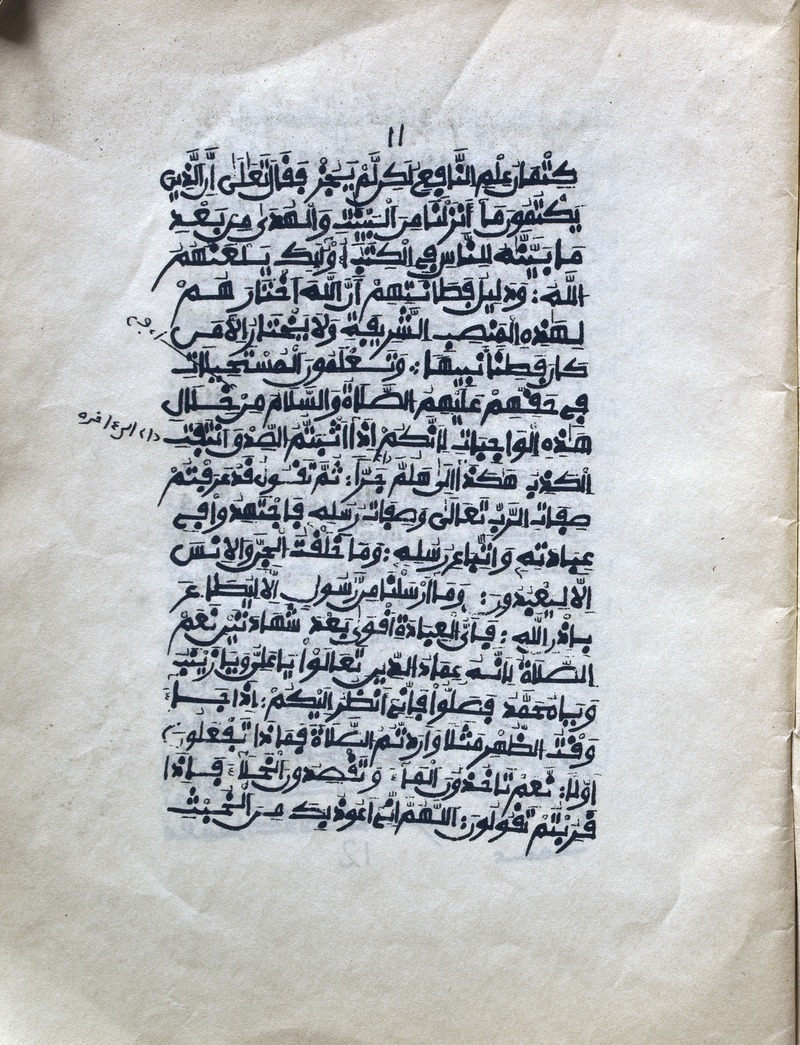 ١١
كِتْمَانَ عِلْمِ النَّافِعِ لَكِن لَّمْ يَجُزْ فَقَالَ تَعَلَى أَنَّ الَّذِينَ
يَكْتُمُونَ مَا أَنزَلْنَا مِنَ الْبَيِّنَٰتِ وَالْهُدَىٰ مِن بَعْدِ
مَا بَيَّنَّٰهُ لِلنَّاسِ فِي الْكِتَٰبِ أُوْلَٰئِكَ يَلْعَنُهُمُ
اللَّهُ: وَدَلِيلُ فَطَانَتِهِمْ أَنَّ اللَّهَ اخْتَارَ هُمْ
لِهَٰذِهِ الْمَنْصِبِ الشَّرِيفَةِ وَلَا يَخْتَارُ إِلَّا مَن
كَانَ فَطِنًا نَبِيهًا: وَتَعْلَمُونَ الْمُسْتَحِيلَاتِ
فِي حَقِّهِمْ عَلَيْهِم الصَّلَاةُ وَالسَّلَام مِنْ خِلَالِ
هَٰذِهِ الْوَاجِبَاتِ لِأَنَّكُمْ إِذَا أَثْبَتُّم الصِّدْقَ انْتَفَتِ
الْكَذِبُ هَكَذَا إِلَى هَلُمَّ جَرًّا: ثُمَّ تَقُولُ قَدْ عَرَفْتُمْ
صِفَاتِ الرَّبِّ تَعَالَى وَصِفَاتِ رُسُلِهِ فَاجْتَهِدُوا فِي
عِبَادَتِهِ وَاتِّبَاعِ رُسُلِهِ: وَمَا خَلَقْتُ الْجِنَّ وَالْإِنسَ
إِلَّا لِيَعْبُدُونِ: وَمَا أَرْسَلْنَا مِن رَّسُولٍ إِلَّا لِيُطَاعَ
بِإِذْنِ اللَّهِ: فَأَيُّ الْعِبَادَةِ أَقْوَى بَعْدَ شَهَادَتَيْنِ نَعَمْ
الصَّلَاةُ لِأَنَّهَ عِمَادُ الدِّينِ تَعَالَوْا يَا عَلِيُّ وَيَا زَيْنَبُ
وَيَا مُحَمَّدُ فَصَلُّوا فَإِنِّي أَنْظُرُ إِلَيْكُمْ: إِذَا جَاءَ
وَقْتُ الظُّهْرِ مَثَلًا وَأَرَدْتُّم الصَّلَاةَ فَمَاذَا تَفْعَلُونَ
أَوَّلًا: نَعَمْ تَأْخُذُونَ الْمَاءَ وَتَقْصِدُونَ الْخَلَاءَ فَإِذَا
قَرُبْتُمْ تَقُولُونَ: اللَّهُمَّ إِنِّي أَعُوذُ بِكَ مِنَ الْخُبُثِ